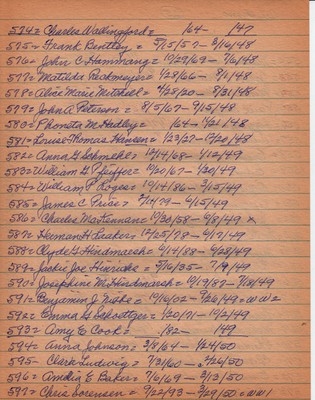 574= Charles Wallingford= 164- 147
575= Frank Bentley = 5/15/57- 3/16/48
576= John C Hammang= 10/29/69- 7/6/48
577= Matilda Beakmeyer= 1/28/66- 8/1/48
578= Alice Marie Mitchell= 4/28/20- 8/31/48
579= John A. Peterson= 8/5/67- 9/15/48
580= Phoneta M. Hadley= 164- 12/21/48
581= Louise Thomas Hansen= 1/23/27- 12/20/48
582= Anna G. Schmeke= 12/14/68- 1/12/49
583= William G. Pfeiffer= 10/20/67- 1/30/49
584= William P. Loges= 10/14/86- 3/15/49
585= James C. Price= 2/14/79- 4/15/49
586= Charles McKennan= 10/30/58- 6/8/49 x
587= Herman H. Laakers= 12/25/78- 6/17/49
588= Clyde G. Hindmarsh= 6/14/88- 6/28/49
589= Jackie Joe Hinrichs= 5/16/35- 7/9/49
590= Josephine M. Hindmarsh= 10/19/87- 7/18/49
591= Benjamin J. Niebo= 10/16/02- 9/26/49= WW2
592= Emma G. Schoettger= 1/20/71- 10/2/49
593= Amy E Cook= 1882- 1949
594= Anna Johnson= 3/8/64- 1/24/50
595- Clark Ludwig= 7/31/60- 2/26/50
596= Amelia E Baker= 7/6/69- 3/13/50
597= Chris Sorensen= 9/22/93- 3/29/50= WW1